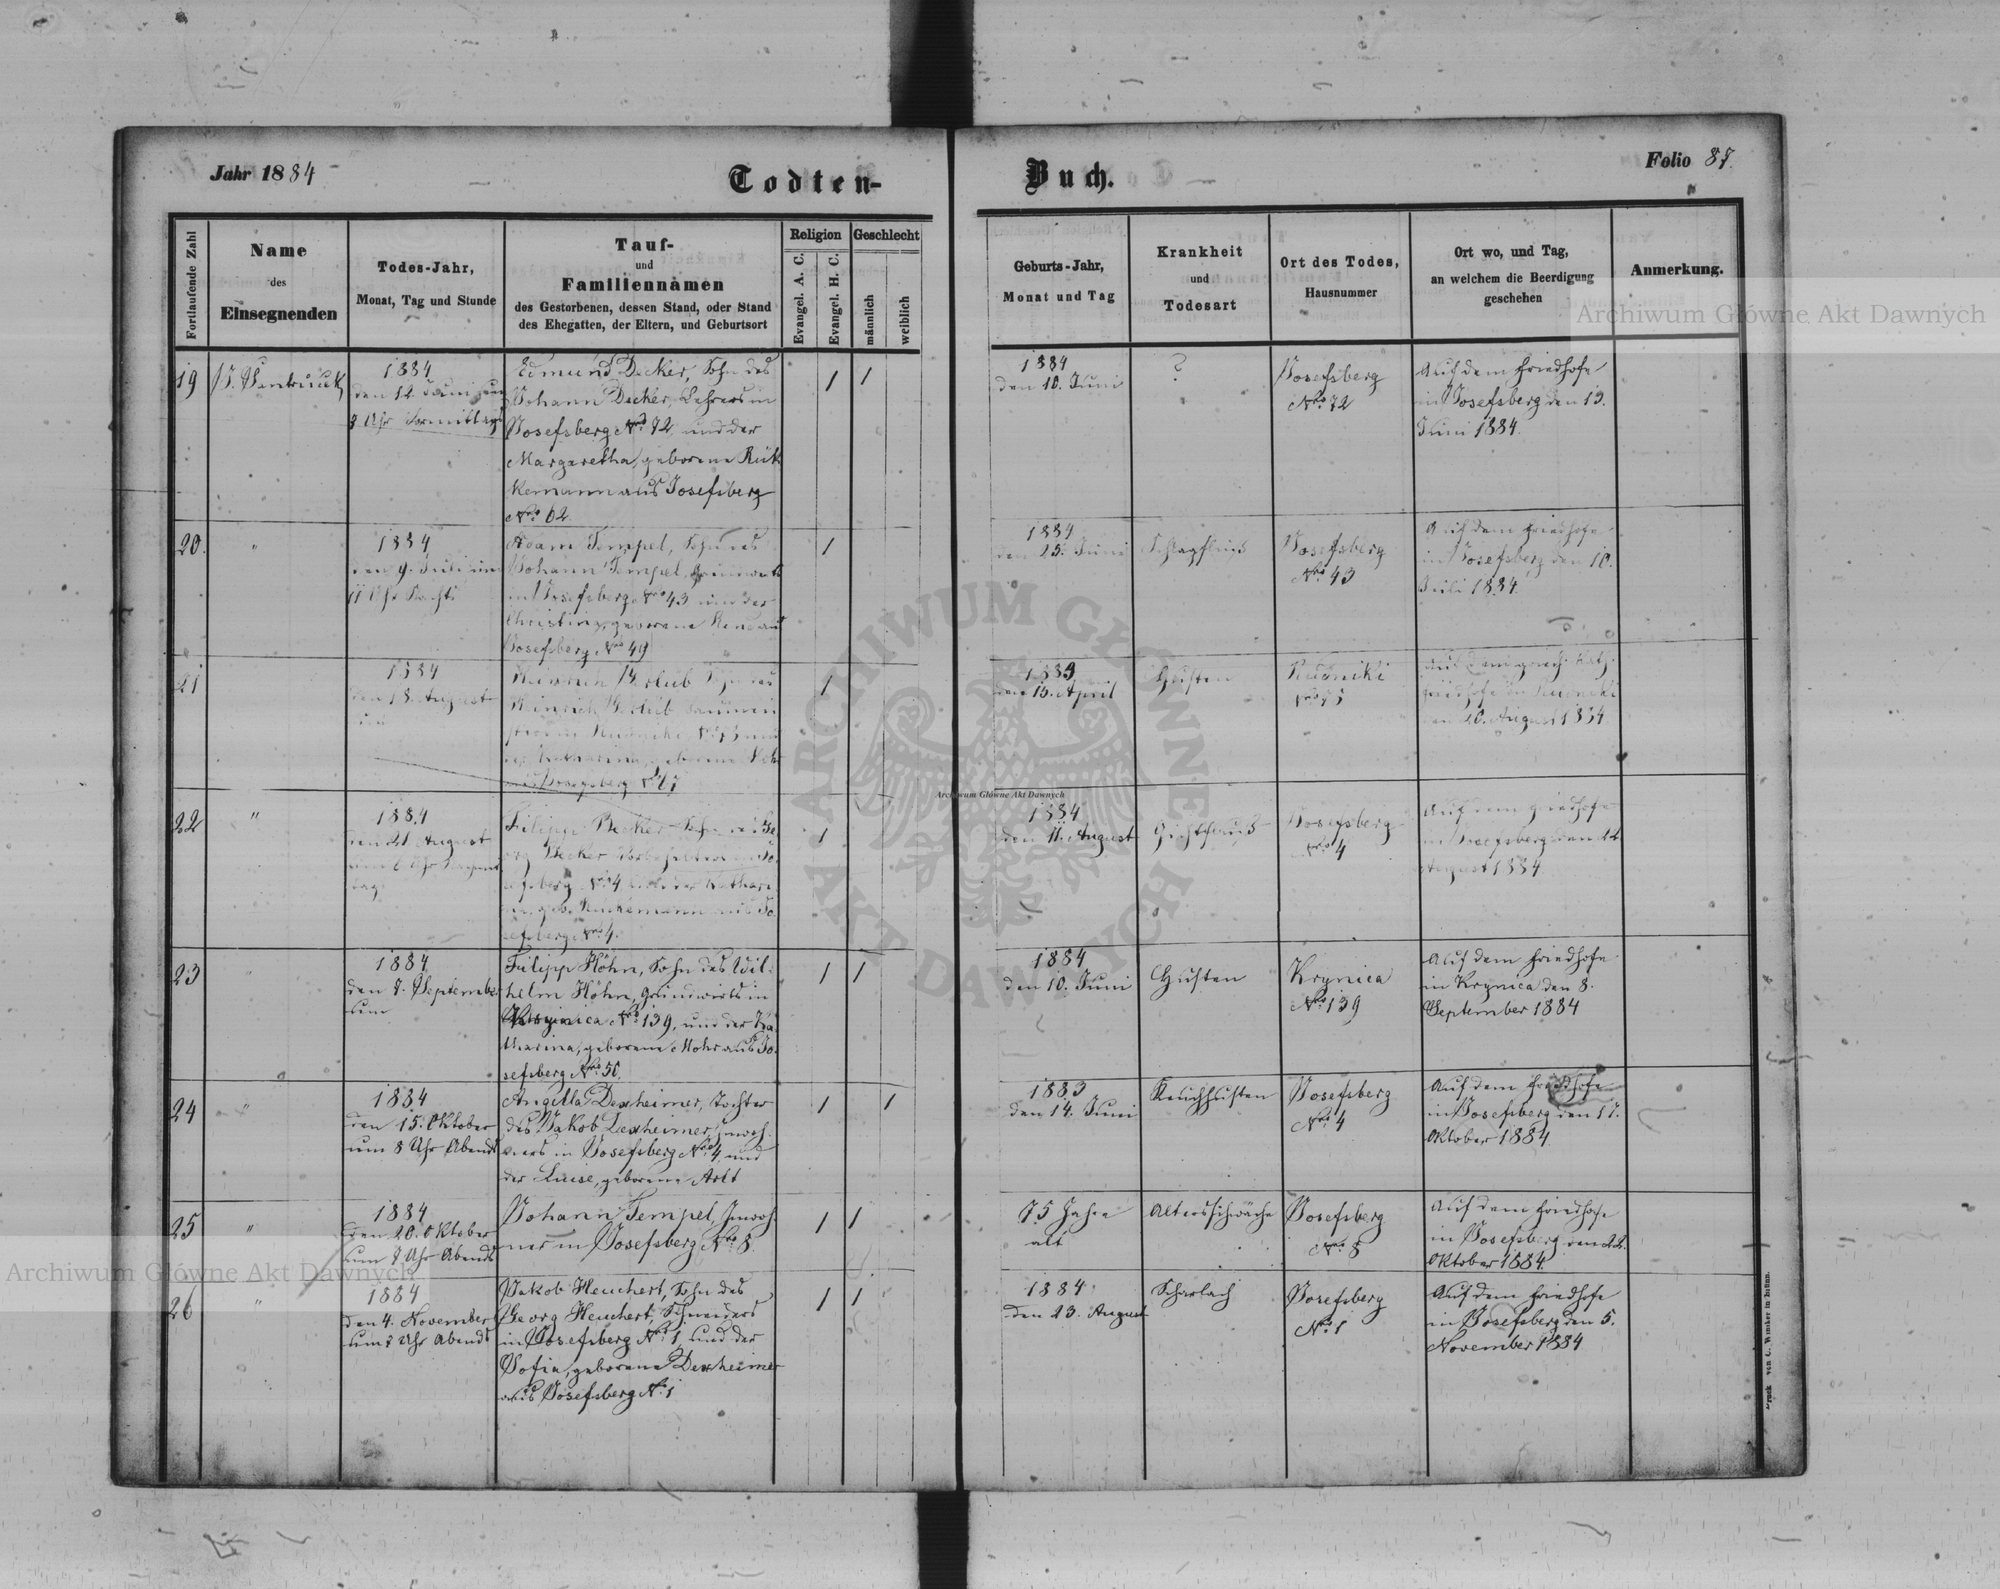 Jahr 1884
Todten-
Buch.
Folio 87.
Fortlaufende Zahl
Name
des
Einsegnenden
Todes-Jahr,
Monat, Tag und Stunde
Tauf-
und
Familiennamen
des Gestorbenen, dessen Stand, oder Stand
des Ehegatten, der Eltern, und Geburtsort
Religion
Evangel. A. C.
Evangel. H. C.
Geschlecht
männlich
weiblich
Geburts-Jahr,
Monat und Tag
Krankheit
und
Todesart
Ort des Todes,
Hausnummer
Ort wo, und Tag,
an welchem die Beerdigung
geschehen
Anmerkung.
19
1884
den 12. Juni um
Uhr Vormittags
Edmund Decker, Sohn des
Johann Decker, Lehrers in
Josefsberg Nro 72, und der
Margaretha, geborene Rük
kemann aus Josefsberg
Nro 62
1 1
1884
den 10. Juni
?
Josefsberg
Nro 72
Auf dem Friedhofe
in Josefsberg den 13.
Juni 1884.
20.
"
1884
den 9. Juli um
11 Uhr Nachts
Adam Tempel, Sohn des
Johann Tempel, Grundwirts
in Josefsberg Nro 43 und der
Christina, geborene
Josefsberg Nro 49
1
1884
den 25. Juni
Schlagfluss
Josefsberg
Nro 43
Auf dem Friedhofe
in Josefsberg den 10.
Juli 1884.
21
1884
den 18. August
Heinrich Sohn des
Heinrich
Katharina, geborene
1
1883
den 15. April
Husten
Rudniki
Auf dem Kath.
Friedhofe in Rudniki
den 20. August 1884
22
"
1884
den 21 August
um 6 Uhr
tag
Filipp Becker Sohn des Ge
org Becker in Jo
sefsberg Nro 4 und der Kathari
na, geb. Rückemann aus Jo
sefsberg Nro 4.
1
1884
den 11. August
Josefsberg
Nro 4
Auf dem Friedhofe
in Josefsberg den
August 1884
23
"
1884
den 7. September
um
Filipp Höhn, Sohn des Wil-
helm Höhn, Grundwirts in
Krynica Nro 139, und der Ka
tharina, geborene Mohr aus Jo
sefsberg Nro 50.
1 1
1884
den 10. Juni
Husten
Krynica
Nro 139
Auf dem Friedhofe
in Krynica den 8.
September 1884
24
"
1884
den 15. Oktober
um 8 Uhr Abends
Angella Dexheimer, Tochter
des Jakob Dexheimer, Inwoh
ners in Josefsberg Nro 4, und
der Luise, geborene Arlt
1 1
1883
den 14. Juni
Keuchhusten
Josefsberg
Nro 4
Auf dem Friedhofe
in Josefsberg den 17.
Oktober 1884
25
"
1884
den 20. Oktober
um 7 Uhr Abends
Johann Tempel, Inwoh
ner in Josefsberg Nro 8.
1 1
75 Jahre
alt
Altersschwäche
Josefsberg
Nro 8
Auf dem Friedhofe
in Josefsberg den 22.
Oktober 1884
26
"
1884
den 4. November
um 7 Uhr Abends
Jakob Heuchert, Sohn des
Georg Heuchert, Schneiders
in Josefsberg Nro 1 und der
Sofia, geborene Dexheimer
aus Josefsberg N. 1
1 1
1884
den 23. August
Scharlach
Josefsberg
Nro 1
Auf dem Friedhofe
in Josefsberg den 5.
November 1884
Druck von C. Winiker in Brünn.
Archiwum Główne Akt Dawnych
Archiwum Główne Akt Dawnych
Archiwum Główne Akt Dawnych
ARCHIWUM GŁÓWNE AKT DAWNYCH